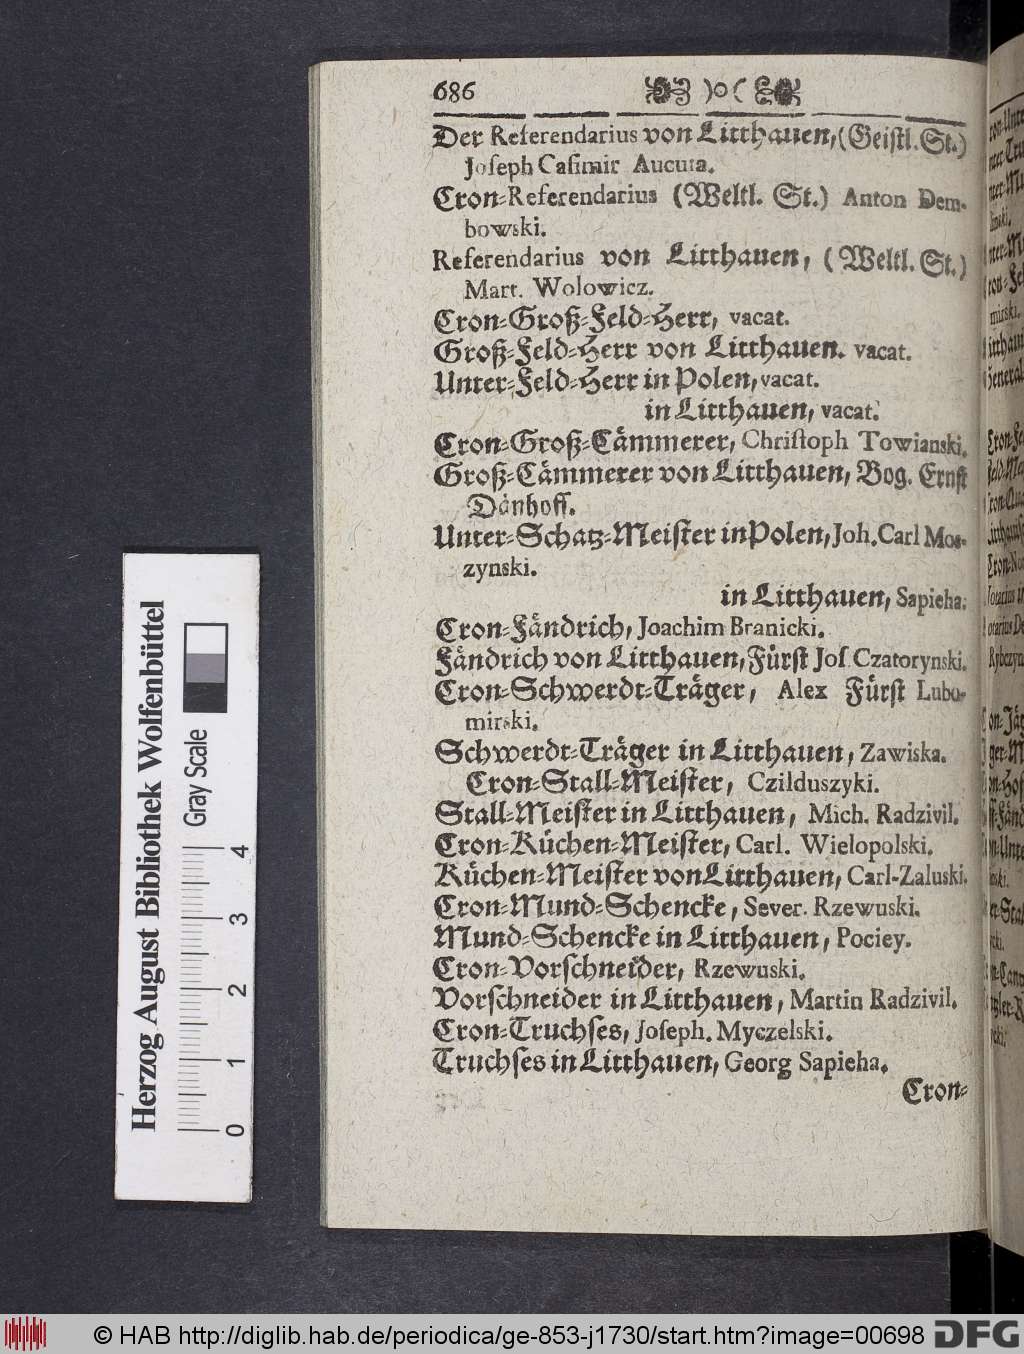 686 )o(
Der Referendarius von Litthauen, (Geistl. St.)
Joſeph Caſimir Aucuta.
Cron-Referendarius (Weltl. St.) Anton Dem-
bowski.
Referendarius von Litthauen, (Weltl. St.)
Mart. Wolowicz.
Cron-Groß-Feld-Herr, vacat.
Groß-Feld-Herr von Litthauen. vacat.
Unter-Feld-Herr in Polen, vacat.
in Litthauen, vacat.
Cron-Groß-Cämmerer, Chriſtoph Towianski.
Groß-Cämmerer von Litthauen, Bog. Ernſt
Dänhoff.
Unter-Schatz-Meiſter in Polen, Joh. Carl Mos-
zynski.
in Litthauen, Sapieha.
Cron-Fändrich, Joachim Branicki.
Fändrich von Litthauen, Fürſt Joſ. Czatorynski.
Cron-Schwerdt-Träger, Alex Fürſt Lubo-
mirski.
Schwerdt-Träger in Litthauen, Zawiska.
Cron-Stall-Meiſter, Czilduszyki.
Stall-Meiſter in Litthauen, Mich. Radzivil.
Cron-Küchen-Meiſter, Carl. Wielopolski.
Küchen-Meiſter von Litthauen, Carl-Zaluski.
Cron-Mund-Schencke, Sever. Rzewuski.
Mund-Schencke in Litthauen, Pociey.
Cron-Vorſchneider, Rzewuski.
Vorſchneider in Litthauen, Martin Radzivil.
Cron-Truchſes, Joſeph. Myczelski.
Truchſes in Litthauen, Georg Sapieha.
Cron-
Herzog August Bibliothek Wolfenbüttel
Gray Scale
0 1 2 3 4
© HAB http://diglib.hab.de/periodica/ge-853-j1730/start.htm?image=00698 DFG